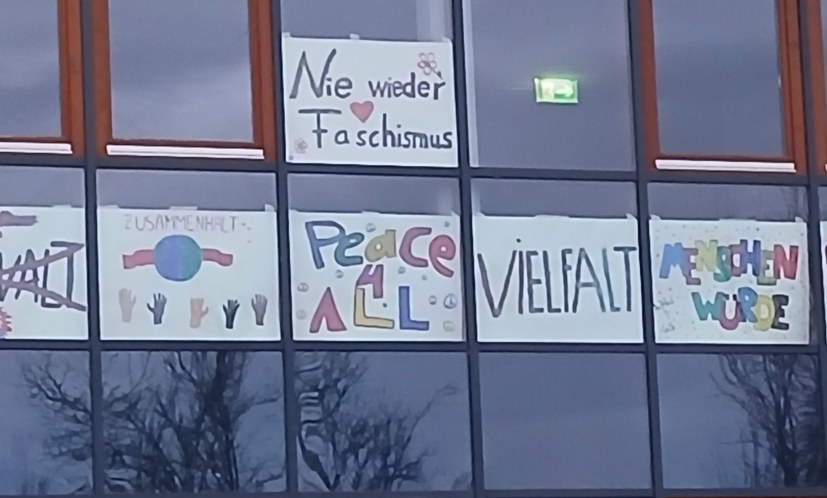 Nie wieder
Faschismus
ZUSAMMENHALT
Peace
4
ALL
VIELFALT
MENSCHEN
WÜRDE